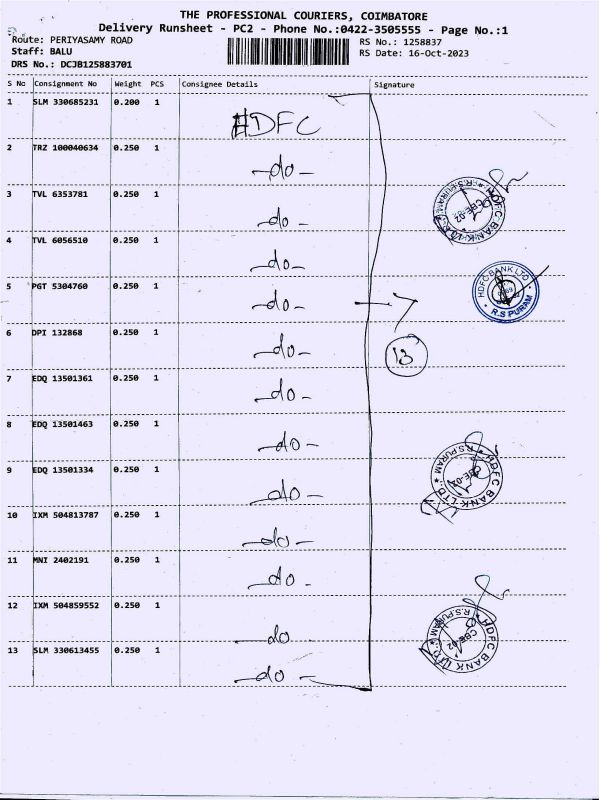 THE PROFESSIONAL COURIERS, COIMBATORE
Delivery Runsheet - PC2 - Phone No.:0422-3505555 - Page No.:1
Route: PERIYASAMY ROAD
RS No.: 1258837
Staff: BALU
RS Date: 16-Oct-2023
DRS No.: DCJB125883701
S No Consignment No Weight PCS Consignee Details Signature
1 SLM 330685231 0.200 1
HDFC
2 TRZ 100040634 0.250 1
-do-
3 TVL 6353781 0.250 1
-do-
HDFC BANK LTD * R.S.PURAM * CBE-02
4 TVL 6056510 0.250 1
-do-
5 PGT 5304760 0.250 1
-do-
HDFC BANK LTD * R.S PURAM *
6 DPI 132868 0.250 1
-do-
13
7 EDQ 13501361 0.250 1
-do-
8 EDQ 13501463 0.250 1
-do-
9 EDQ 13501334 0.250 1
-do-
HDFC BANK LTD * R.S.PURAM * CBE-02
10 IXM 504813787 0.250 1
-do-
11 MNI 2402191 0.250 1
-do-
12 IXM 504859552 0.250 1
-do
HDFC BANK LTD * R.S.PURAM * CBE-02
13 SLM 330613455 0.250 1
-do-